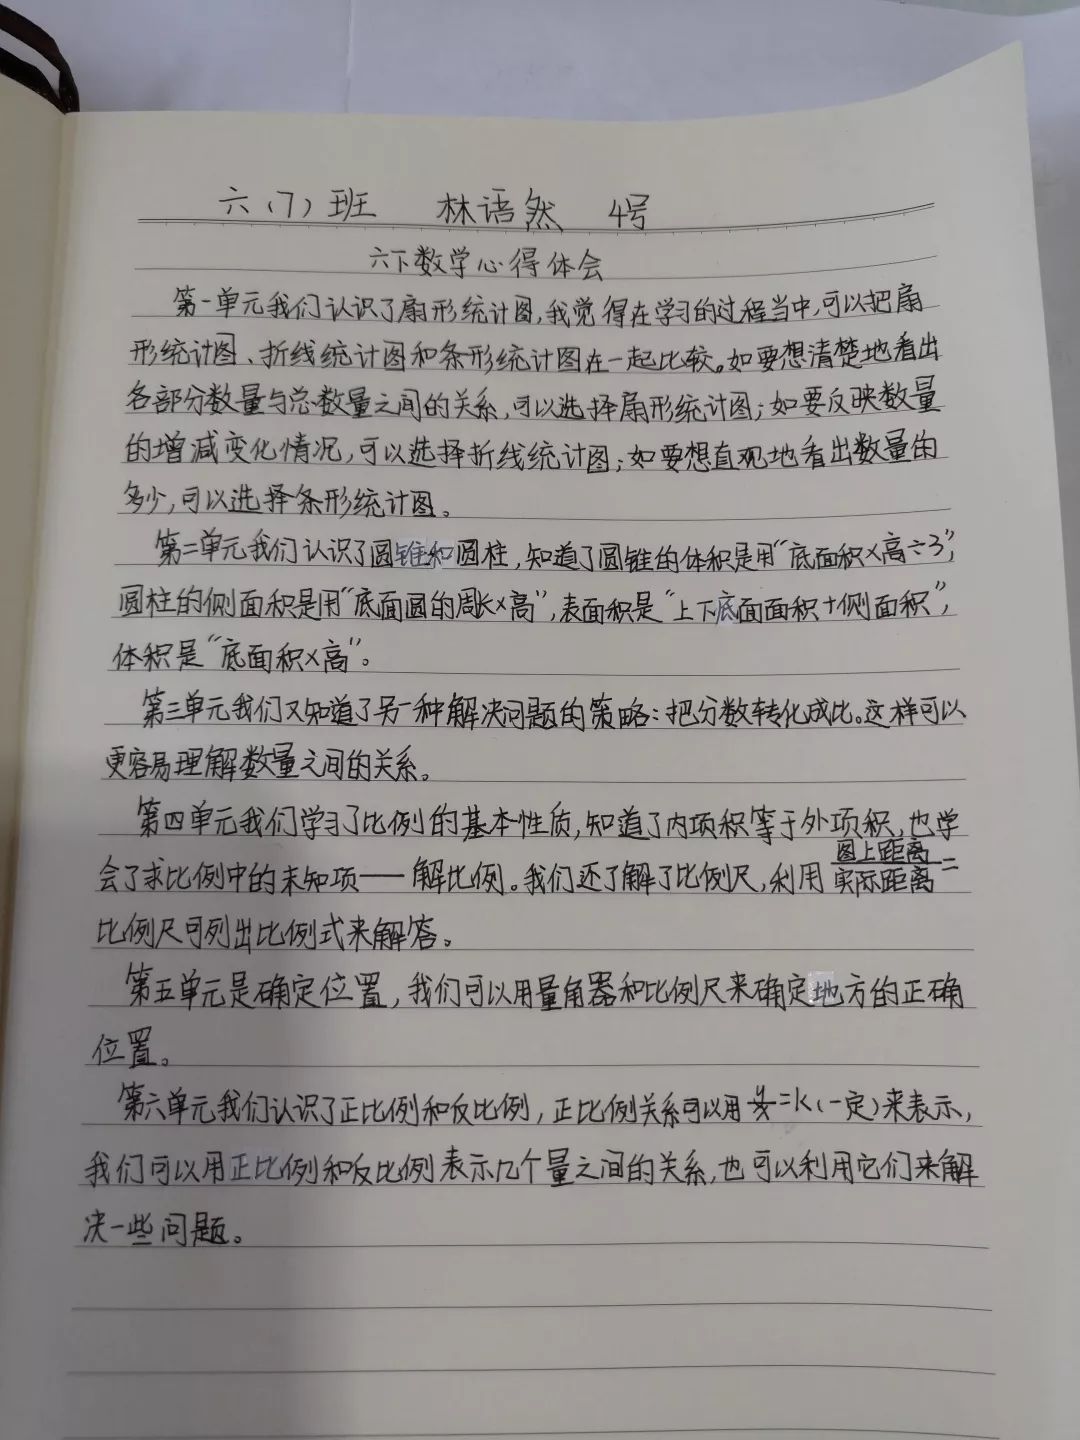 六(7)班 林语然 4号
六下数学心得体会
第一单元我们认识了扇形统计图,我觉得在学习的过程当中,可以把扇
形统计图、折线统计图和条形统计图在一起比较。如要想清楚地看出
各部分数量与总数量之间的关系,可以选择扇形统计图;如要反映数量
的增减变化情况,可以选择折线统计图;如要想直观地看出数量的
多少,可以选择条形统计图。
第二单元我们认识了圆锥和圆柱,知道了圆锥的体积是用“底面积×高÷3”,
圆柱的侧面积是用“底面圆的周长×高”,表面积是“上下底面面积+侧面积”,
体积是“底面积×高”。
第三单元我们又知道了另一种解决问题的策略:把分数转化成比。这样可以
更容易理解数量之间的关系。
第四单元我们学习了比例的基本性质,知道了内项积等于外项积,也学
会了求比例中的未知项——解比例。我们还了解了比例尺,利用图上距离/实际距离=
比例尺可列出比例式来解答。
第五单元是确定位置,我们可以用量角器和比例尺来确定地方的正确
位置。
第六单元我们认识了正比例和反比例,正比例关系可以用y/x=k(一定)来表示,
我们可以用正比例和反比例表示几个量之间的关系,也可以利用它们来解
决一些问题。